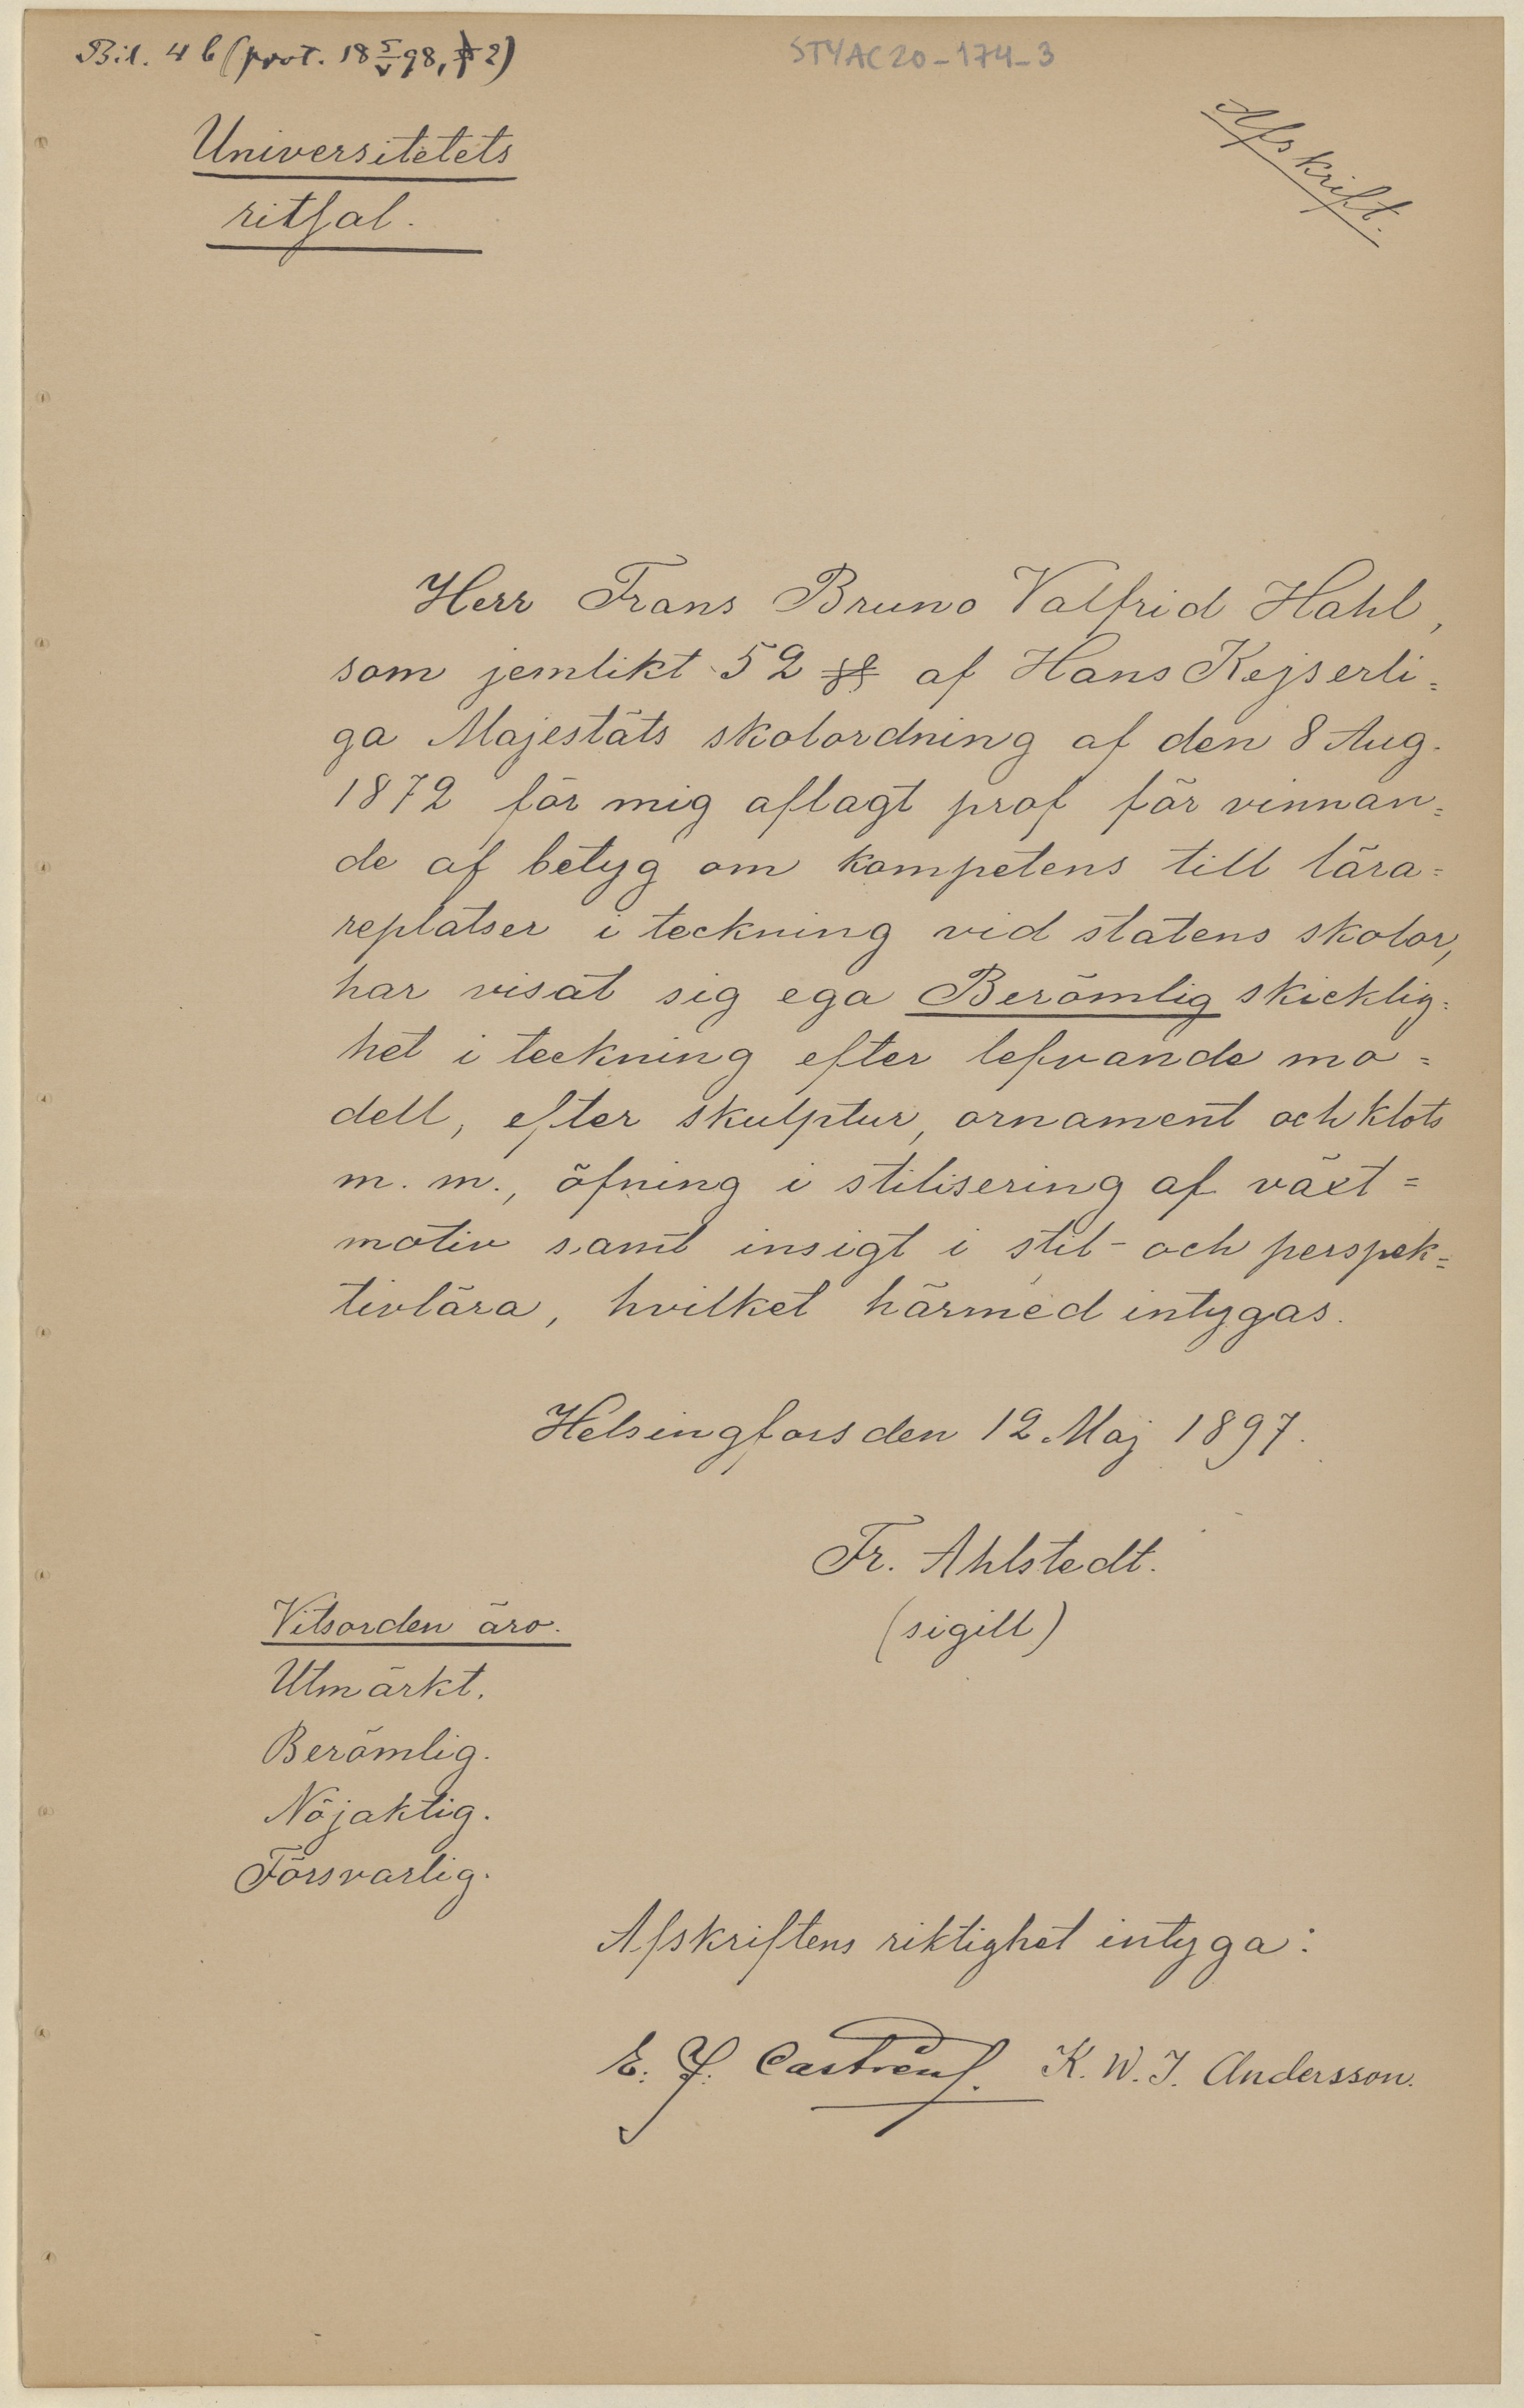 Bil. 4 b (prot. 18 5/V 98, § 2)
STYAC20-174-3
Afskrift.
Universitetets
ritsal.
Herr Frans Bruno Valfrid Hahl,
som jemlikt 52 § af Hans Kejserli=
ga Majestäts skolordning af den 8 Aug.
1872 för mig aflagt prof för vinnan=
de af betyg om kompetens till lära=
replatser i teckning vid statens skolor,
har visat sig ega Berömlig skicklig=
het i teckning efter lefvande mo=
dell, efter skulptur, ornament och klots
m. m., öfning i stilisering af växt=
motiv samt insigt i stil- och perspek=
tivlära, hvilket härmed intygas.
Helsingfors den 12 Maj 1897.
Fr. Ahlstedt.
(sigill)
Vitsorden äro.
Utmärkt.
Berömlig.
Nöjaktig.
Försvarlig.
Afskriftens riktighet intyga:
E. J. Castrén. K. W. J. Andersson.